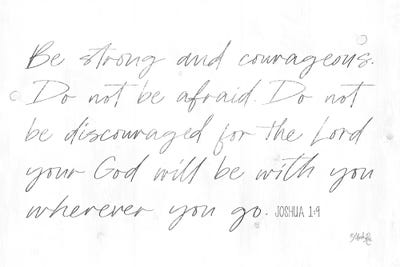 Be strong and courageous.
Do not be afraid. Do not
be discouraged for the Lord
your God will be with you
wherever you go. JOSHUA 1:9